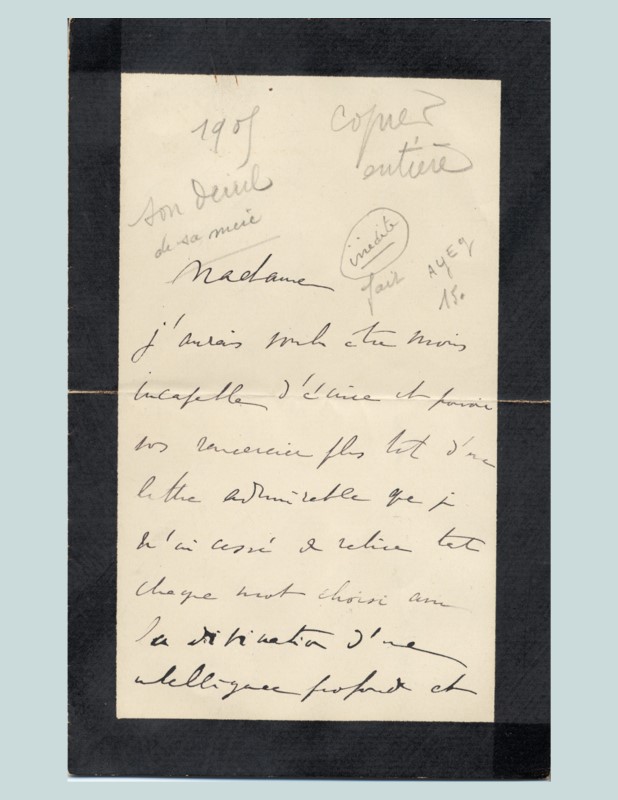 1905
copier
entière
son deuil
de sa mère
inédite
fait
15.
Madame
j'aurais voulu être moins
incapable d'écrire et pouvoir
vous remercier plus tôt d'une
lettre admirable que je
n'ai cessé de relire tant
chaque mot choisi avec
la divination d'une
intelligence profonde et